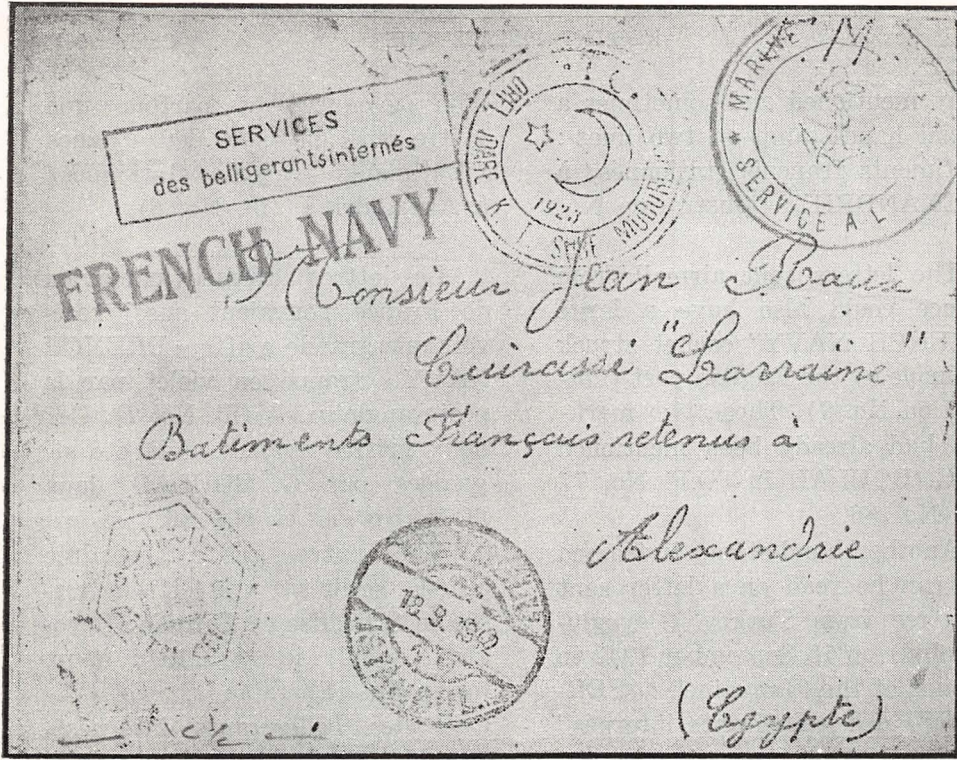 SERVICES
des belligerantsinternés
FRENCH NAVY
1923
MARINE
* SERVICE A L
Monsieur Jean
Cuirassé "Lorraine"
Batiments Français retenus à
Alexandrie
(Egypte)
18.9.1942
ISTANBUL